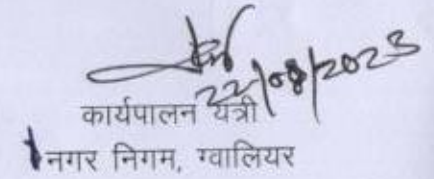 22/08/2023
कार्यपालन यंत्री
नगर निगम, ग्वालियर